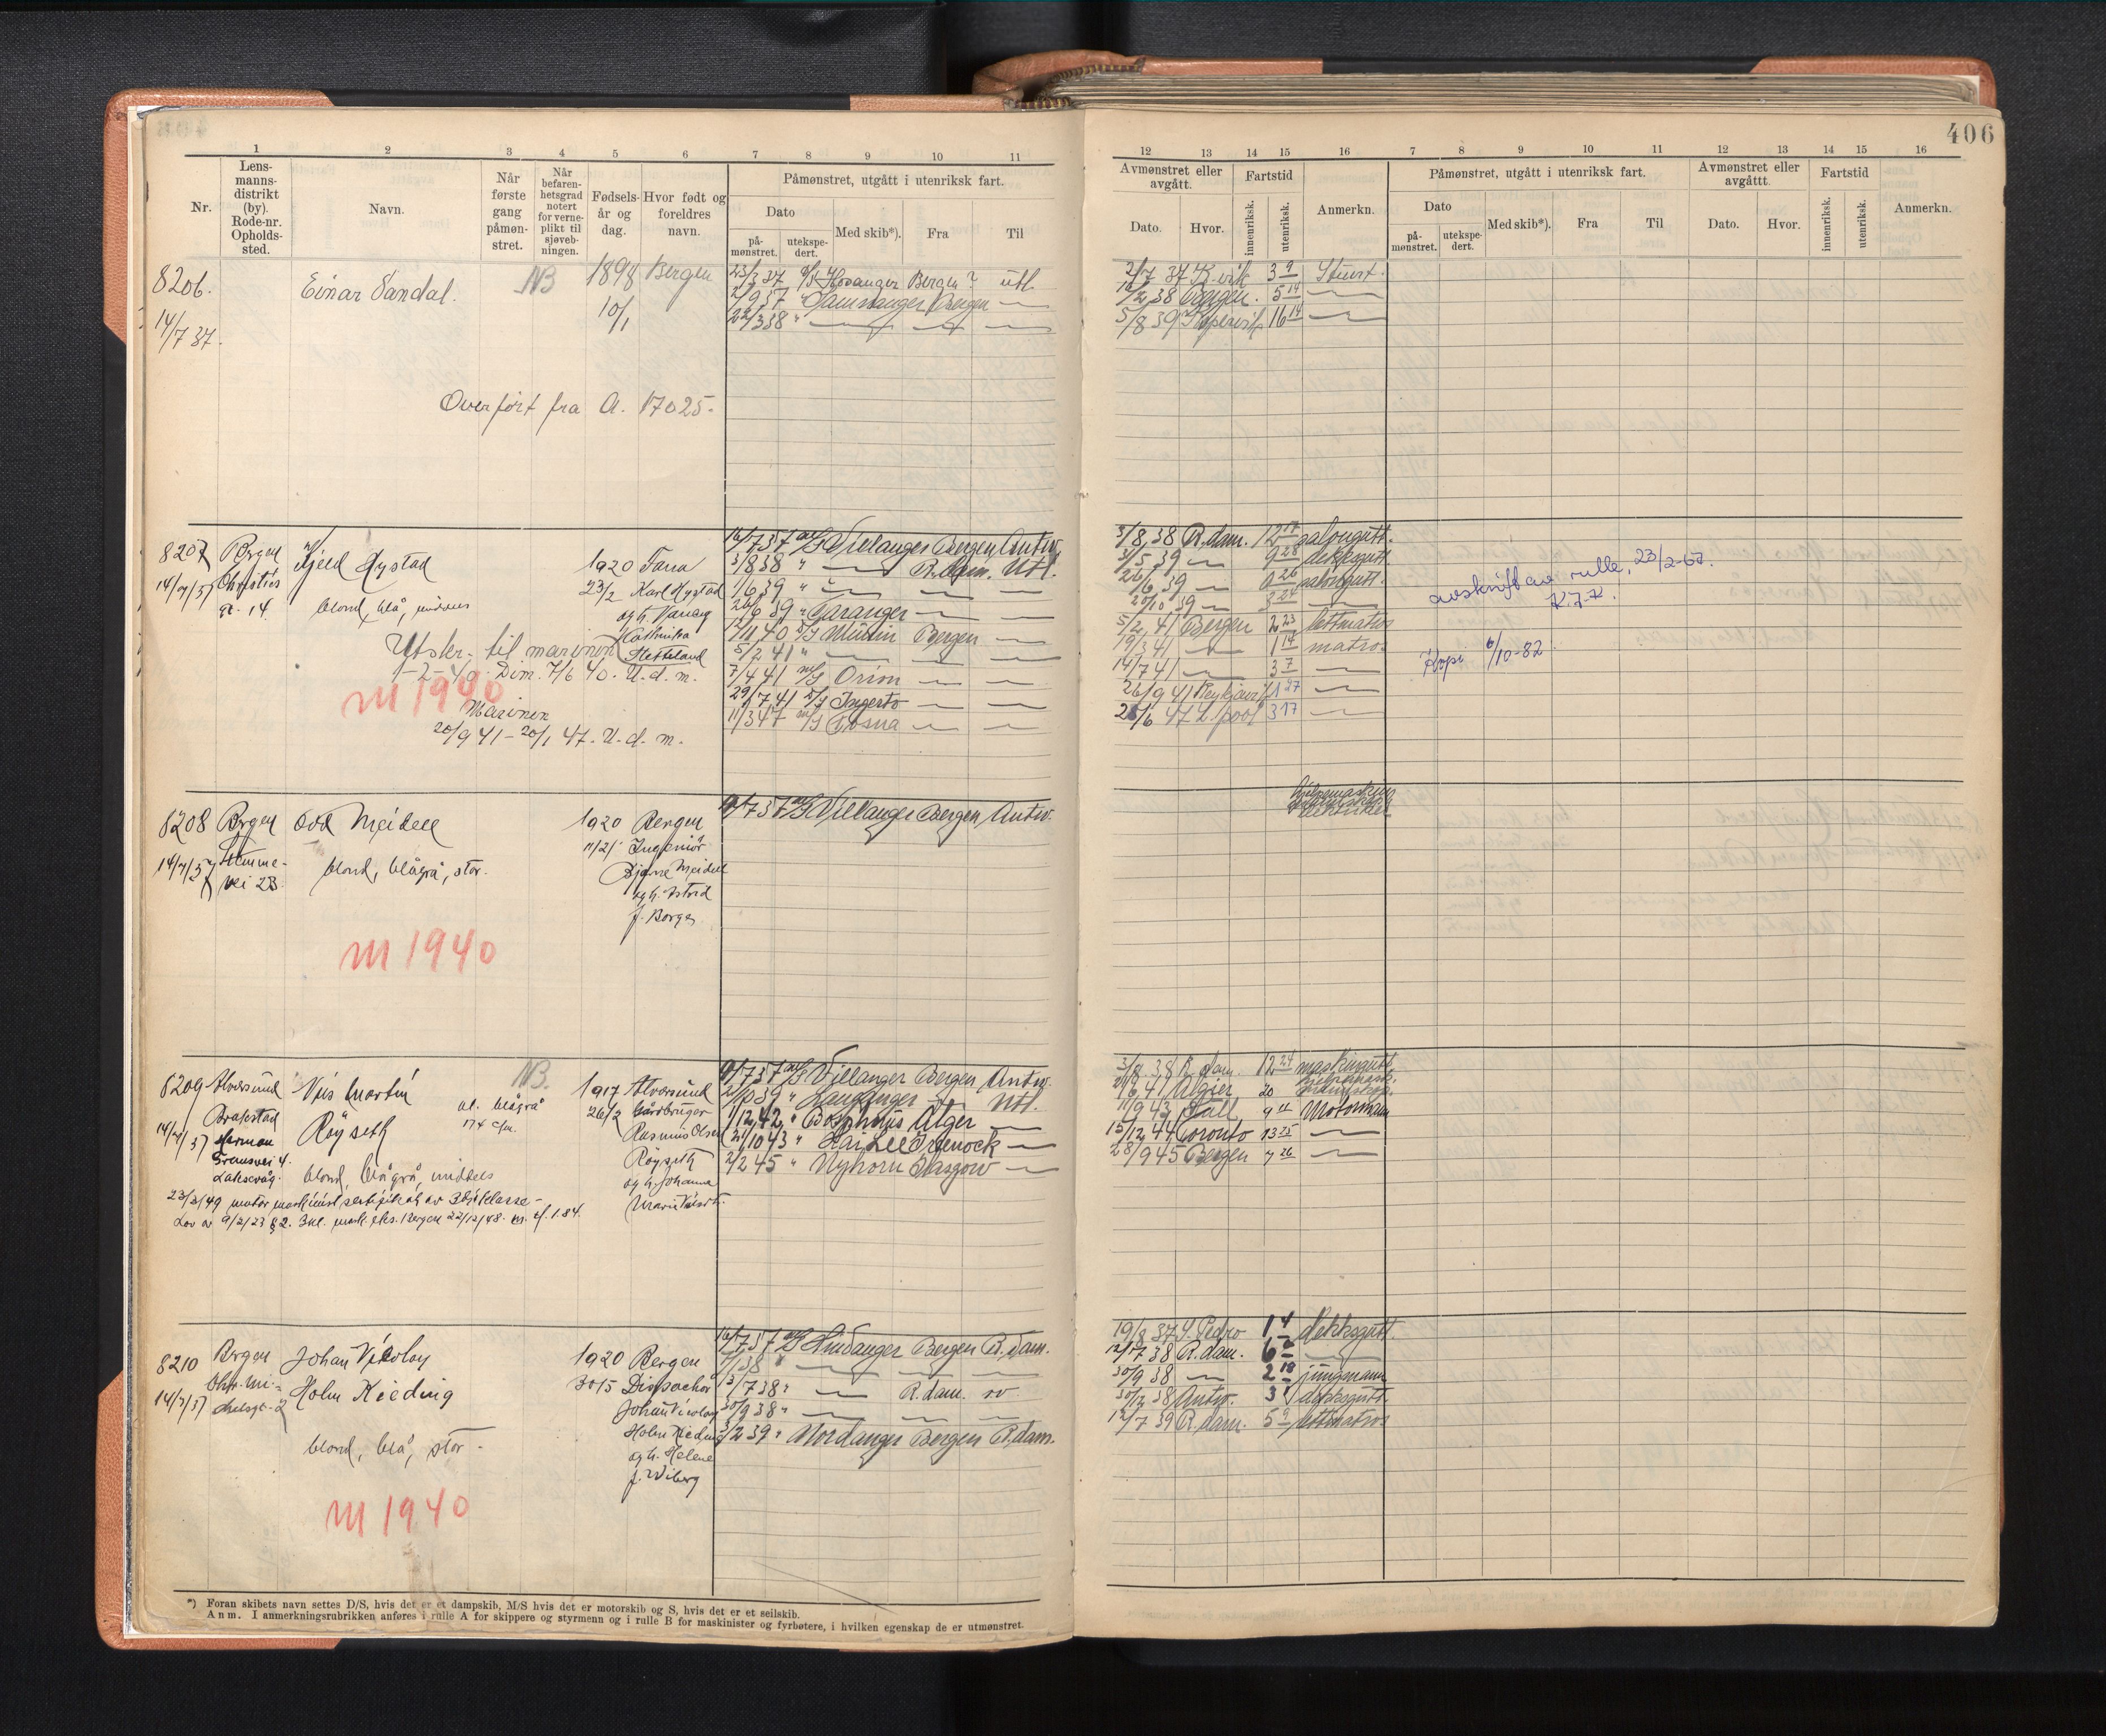 406
1 2 3 4 5 6 7 8 9 10 11
Nr.
Lens-
manns-
distrikt
(by).
Rode-nr.
Opholds-
sted.
Navn.
Når
første
gang
påmøn-
stret.
Når
befaren-
hetsgrad
notert
for verne-
plikt til
sjøveb-
ningen.
Fødsels-
år og
dag.
Hvor født og
foreldres
navn.
Påmønstret, utgått i utenriksk fart.
Dato
på-
mønstret.
utekspe-
dert.
Med skib*).
Fra
Til
12 13 14 15 16 7 8 9 10 11 12 13 14 15 16
Avmønstret eller
avgått.
Dato.
Hvor.
Fartstid
innenriksk.
utenriksk.
Anmerkn.
Påmønstret, utgått i utenriksk fart.
Dato
på-
mønstret.
utekspe-
dert.
Med skib*).
Fra
Til
Avmønstret eller
avgåttt.
Dato.
Hvor.
Fartstid
innenriksk.
utenriksk.
Anmerkn.
8206.
14/7 37.
Einar Sandal.
NB
1898
10/1
Bergen
23/3 37 Hovanger Bergen ? utl.
Samnanger Bergen
22/3 38 "
Overført fra A. 17025.
2/7 37 K.vik 3 9 Stuert.
38 Bergen. 5 14
5/8 39 Kopervik 16 14
8207
14/7/37
Bergen
Christies
gt. 14
Kjeld Hystad
blond, blå, middels
1920
23/2
Fana
Karl Hystad
og h.
Kathinka
Hetteland
16/7 37 M/S Villanger Bergen Antw.
3/8 38 " R.dam. Utl.
1/6 39 "
26/6 39 " Taranger
40 Bergen
5/2 41 "
3/4 41 M/S Orion
29/7 41 D/S Ingerto
11/3 47 M/S Tosna
Utskr. til marinen
1-2-40. Dim. 7/6 40. U.d.m.
M 1940
Marinen
20/9 41 - 20/1 47. U.d.m.
3/8 38 R.dam. 12 17 salongutt.
31/5 39 9 28 dekksgutt
26/6 39 0 26 salongutt.
20/10 39 3 24
5/2 41 Bergen 2 23 lettmatros
19/3 41 1 14 matros
14/7 41 3 7
26/9 41 Reykjavik 1 27
6 47 L.pool 3 17
avskrift av rulle, 23/2-67.
K.J.K.
Kopi 6/10-82
8208
14/7/37
Bergen
vei 23.
Odd Meidell
blond, blågrå, stor.
1920
11/2
Bergen
Ingeniør
Bjarne Meidell
og h. Astrid
f. Borge
M/S Villanger Bergen Antw.
M 1940
8209
14/7/37
Alversund
Herman
Fransvei 4.
Laksevåg.
Nils Martin
Röyseth
NB.
øl. blågrå
174 c/m.
blond, blågrå, middels
1917
26/2
Alversund
Gårdbruger
Rasmus Olsen
Röyseth
og h. Johanne
M/S Villanger Bergen Antw.
39 " Utl.
1/12 42 " Bosphorus Alger
10 43 " Hai Lee Greenock
2/2 45 " Nyhorn Glasgow
23/3/49 motor maskinist sertifikat av 3dje klasse -
Lov av 9/2/23 § 2. 3kl. mask. eks. Bergen 22/12/48.
3/8 38 R.dam. 12 24 maskingutt.
6 41 Algier 20
11/9 43 Hull 9 Motormann
15/12 44 Toronto 13 25
28/9 45 Bergen 7 26
8210
14/7/37
Bergen
Chr. Mi-
chelsgt. 2
Johan Nicolay
Holm Kieding
blond, blå, stor -
1920
30/5
Bergen
Dispachör
Johan Nicolay
Holm Kieding
og h. Helene
f. Wiberg
16/7 37 M/S Hindanger Bergen R.dam.
38 "
7 38 " R.dam. vv.
30/9 38 "
2 39 " Nordanger Bergen R.dam.
M 1940
19/8 37 S. Pedro 1 4 dekksgutt
38 R.dam. 6
30/9 38 2 18 jungmann
30/12 38 Antw. 3 dekksgutt
12/7 39 R.dam. 5 9 lettmatros
*) Foran skibets navn settes D/S, hvis det er et dampskib, M/S hvis det er motorskib og S, hvis det er et seilskib.
Anm. I anmerkningsrubrikken anføres i rulle A for skippere og styrmenn og i rulle B for maskinister og fyrbøtere, i hvilken egenskap de er utmønstret.